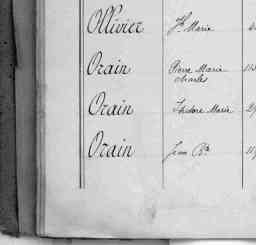 Ollivier Jh Marie
Orain Pierre Marie
Charles
Orain Isidore Marie
Orain Jean Bte